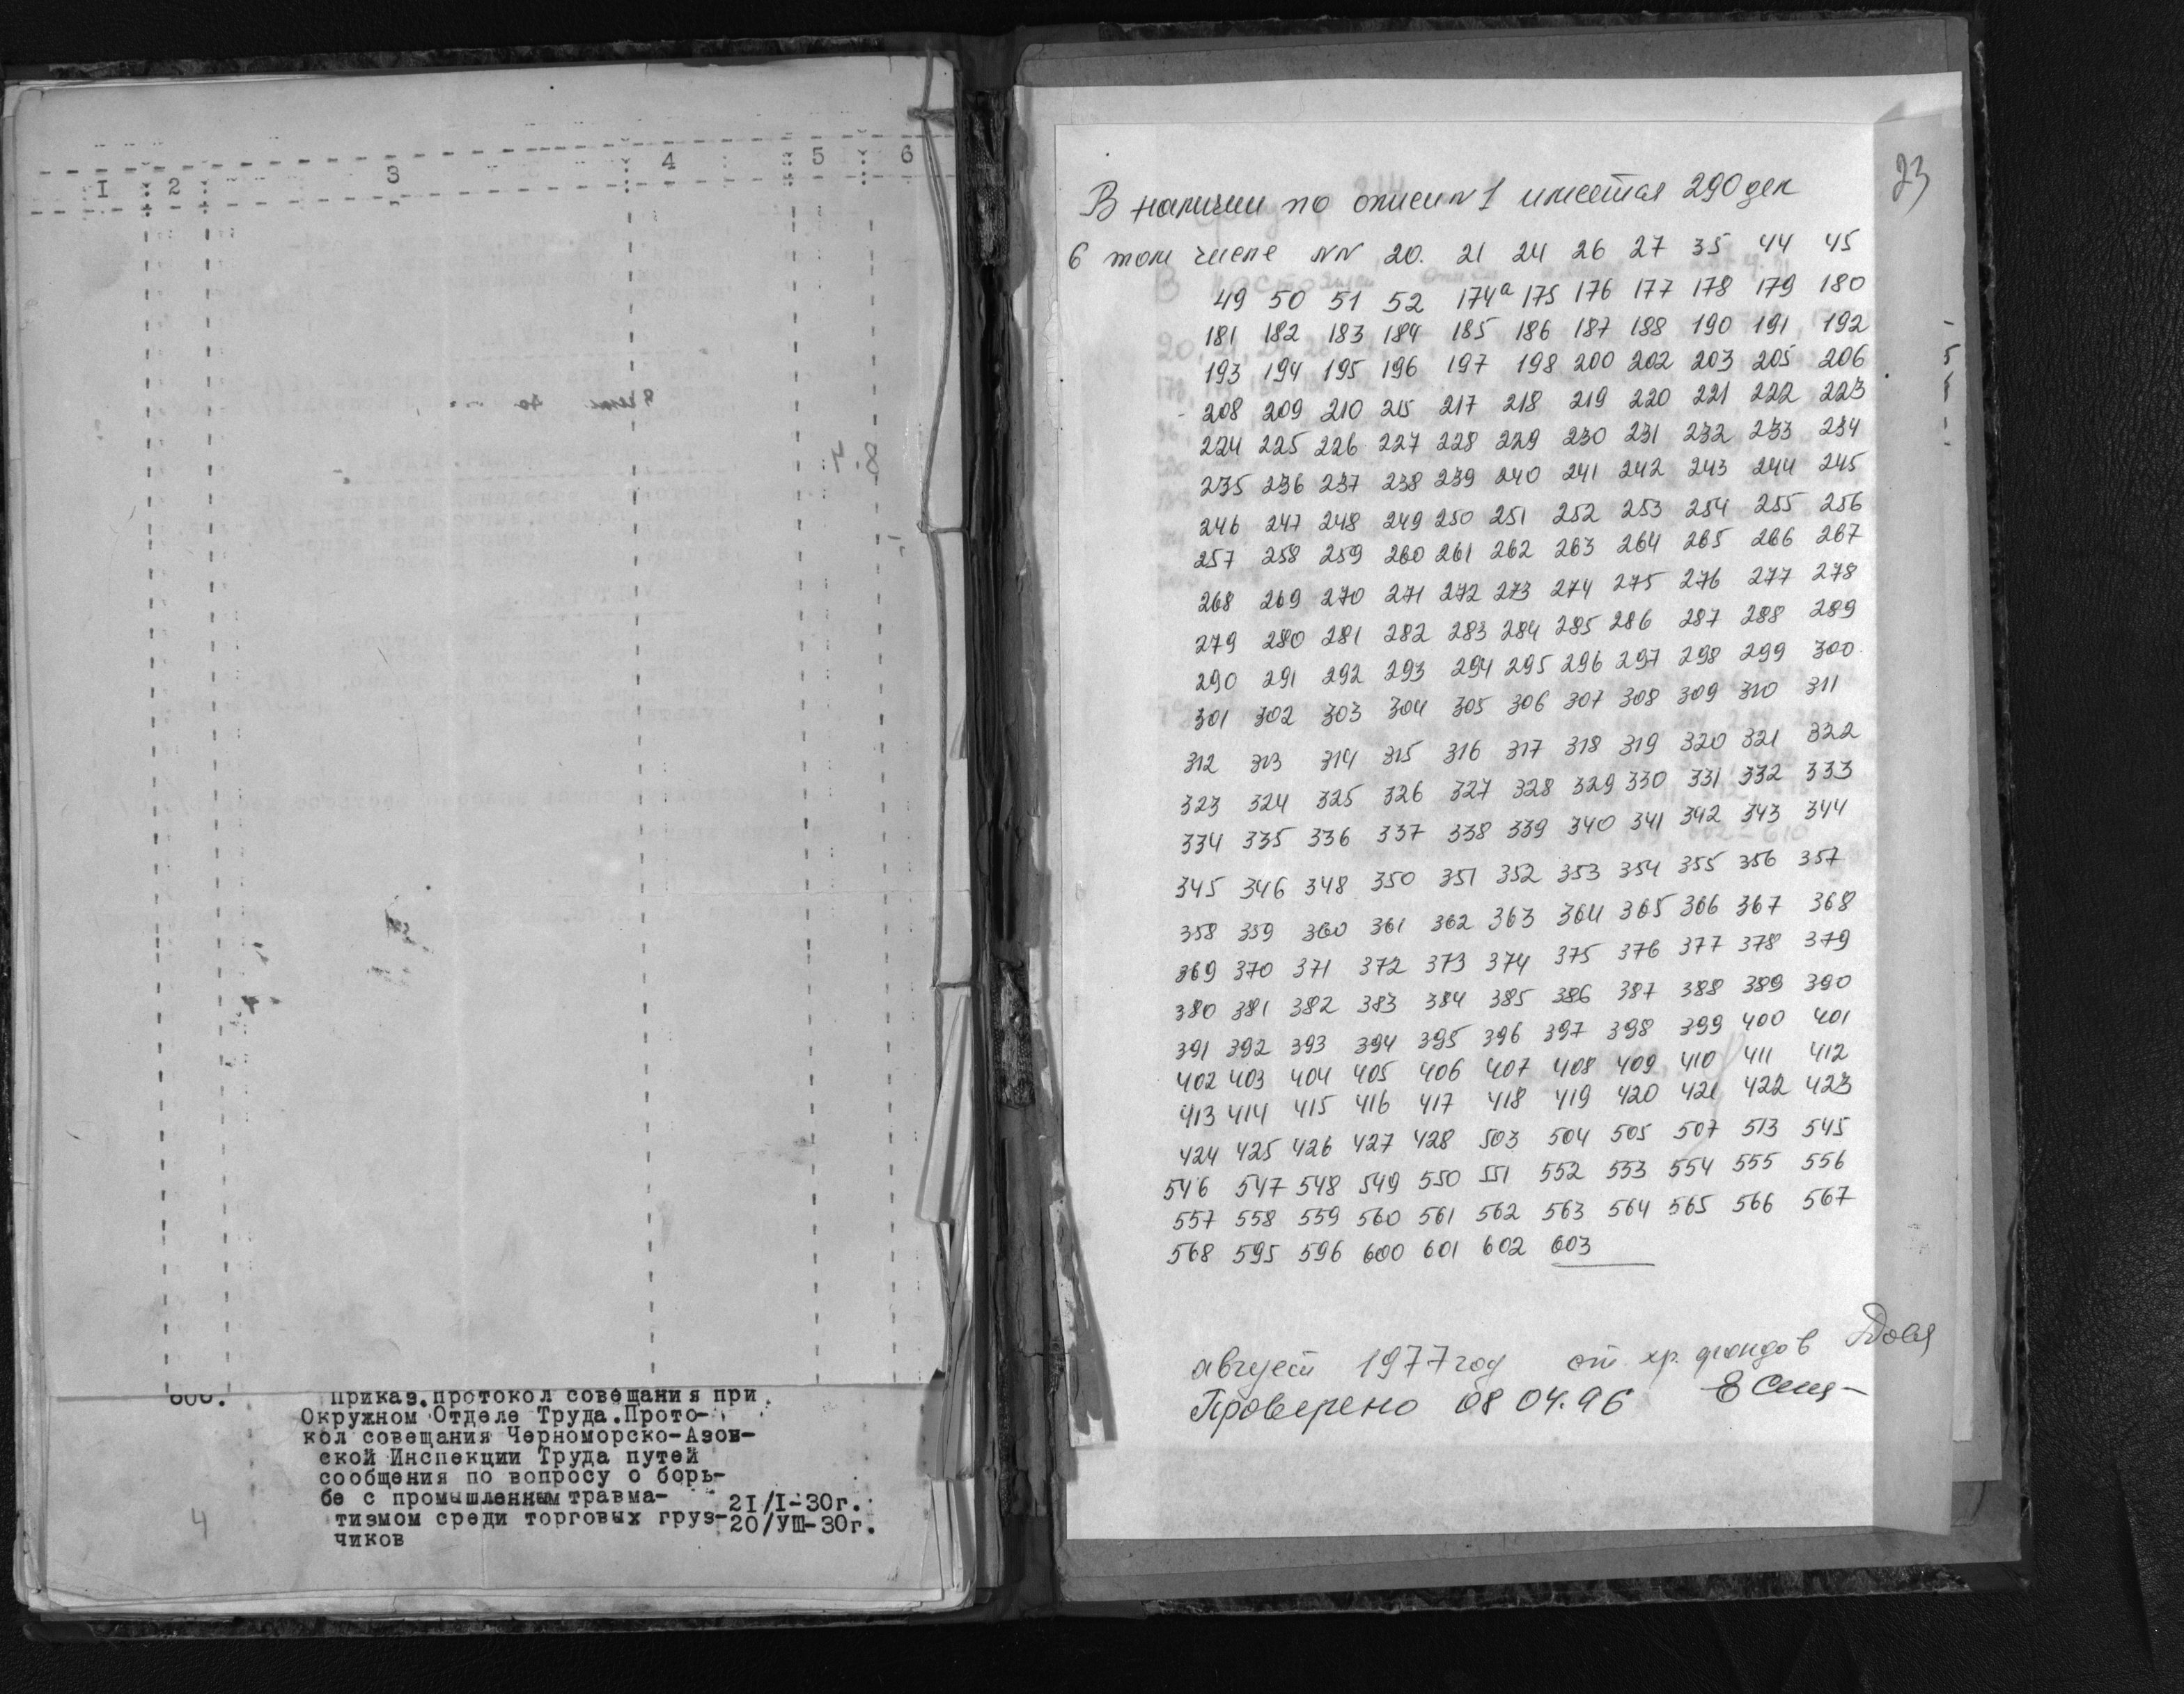 I 2 3 4 5 6
Приказ.протокол совещания при
Окружном Отделе Труда.Прото-
кол совещания Черноморско-Азов-
ской Инспекции Труда путей
сообщения по вопросу о борь-
бе с промышленным травма-
21/I-30г.
тизмом среди торговых груз-
20/УШ-30г.
чиков
4
23
В наличии по описи №1 имеется 290 дел
в том числе NN 20. 21 24 26 27 35 44 45
49 50 51 52 174а 175 176 177 178 179 180
181 182 183 184 185 186 187 188 190 191 192
193 194 195 196 197 198 200 202 203 205 206
208 209 210 215 217 218 219 220 221 222 223
224 225 226 227 228 229 230 231 232 233 234
235 236 237 238 239 240 241 242 243 244 245
246 247 248 249 250 251 252 253 254 255 256
257 258 259 260 261 262 263 264 265 266 267
268 269 270 271 272 273 274 275 276 277 278
279 280 281 282 283 284 285 286 287 288 289
290 291 292 293 294 295 296 297 298 299 300
301 302 303 304 305 306 307 308 309 310 311
312 313 314 315 316 317 318 319 320 321 322
323 324 325 326 327 328 329 330 331 332 333
334 335 336 337 338 339 340 341 342 343 344
345 346 348 350 351 352 353 354 355 356 357
358 359 360 361 362 363 364 365 366 367 368
369 370 371 372 373 374 375 376 377 378 379
380 381 382 383 384 385 386 387 388 389 390
391 392 393 394 395 396 397 398 399 400 401
402 403 404 405 406 407 408 409 410 411 412
413 414 415 416 417 418 419 420 421 422 423
424 425 426 427 428 503 504 505 507 513 545
546 547 548 549 550 551 552 553 554 555 556
557 558 559 560 561 562 563 564 565 566 567
568 595 596 600 601 602 603
август 1977 год ст. хр. фондов
Проверено 08 04.96